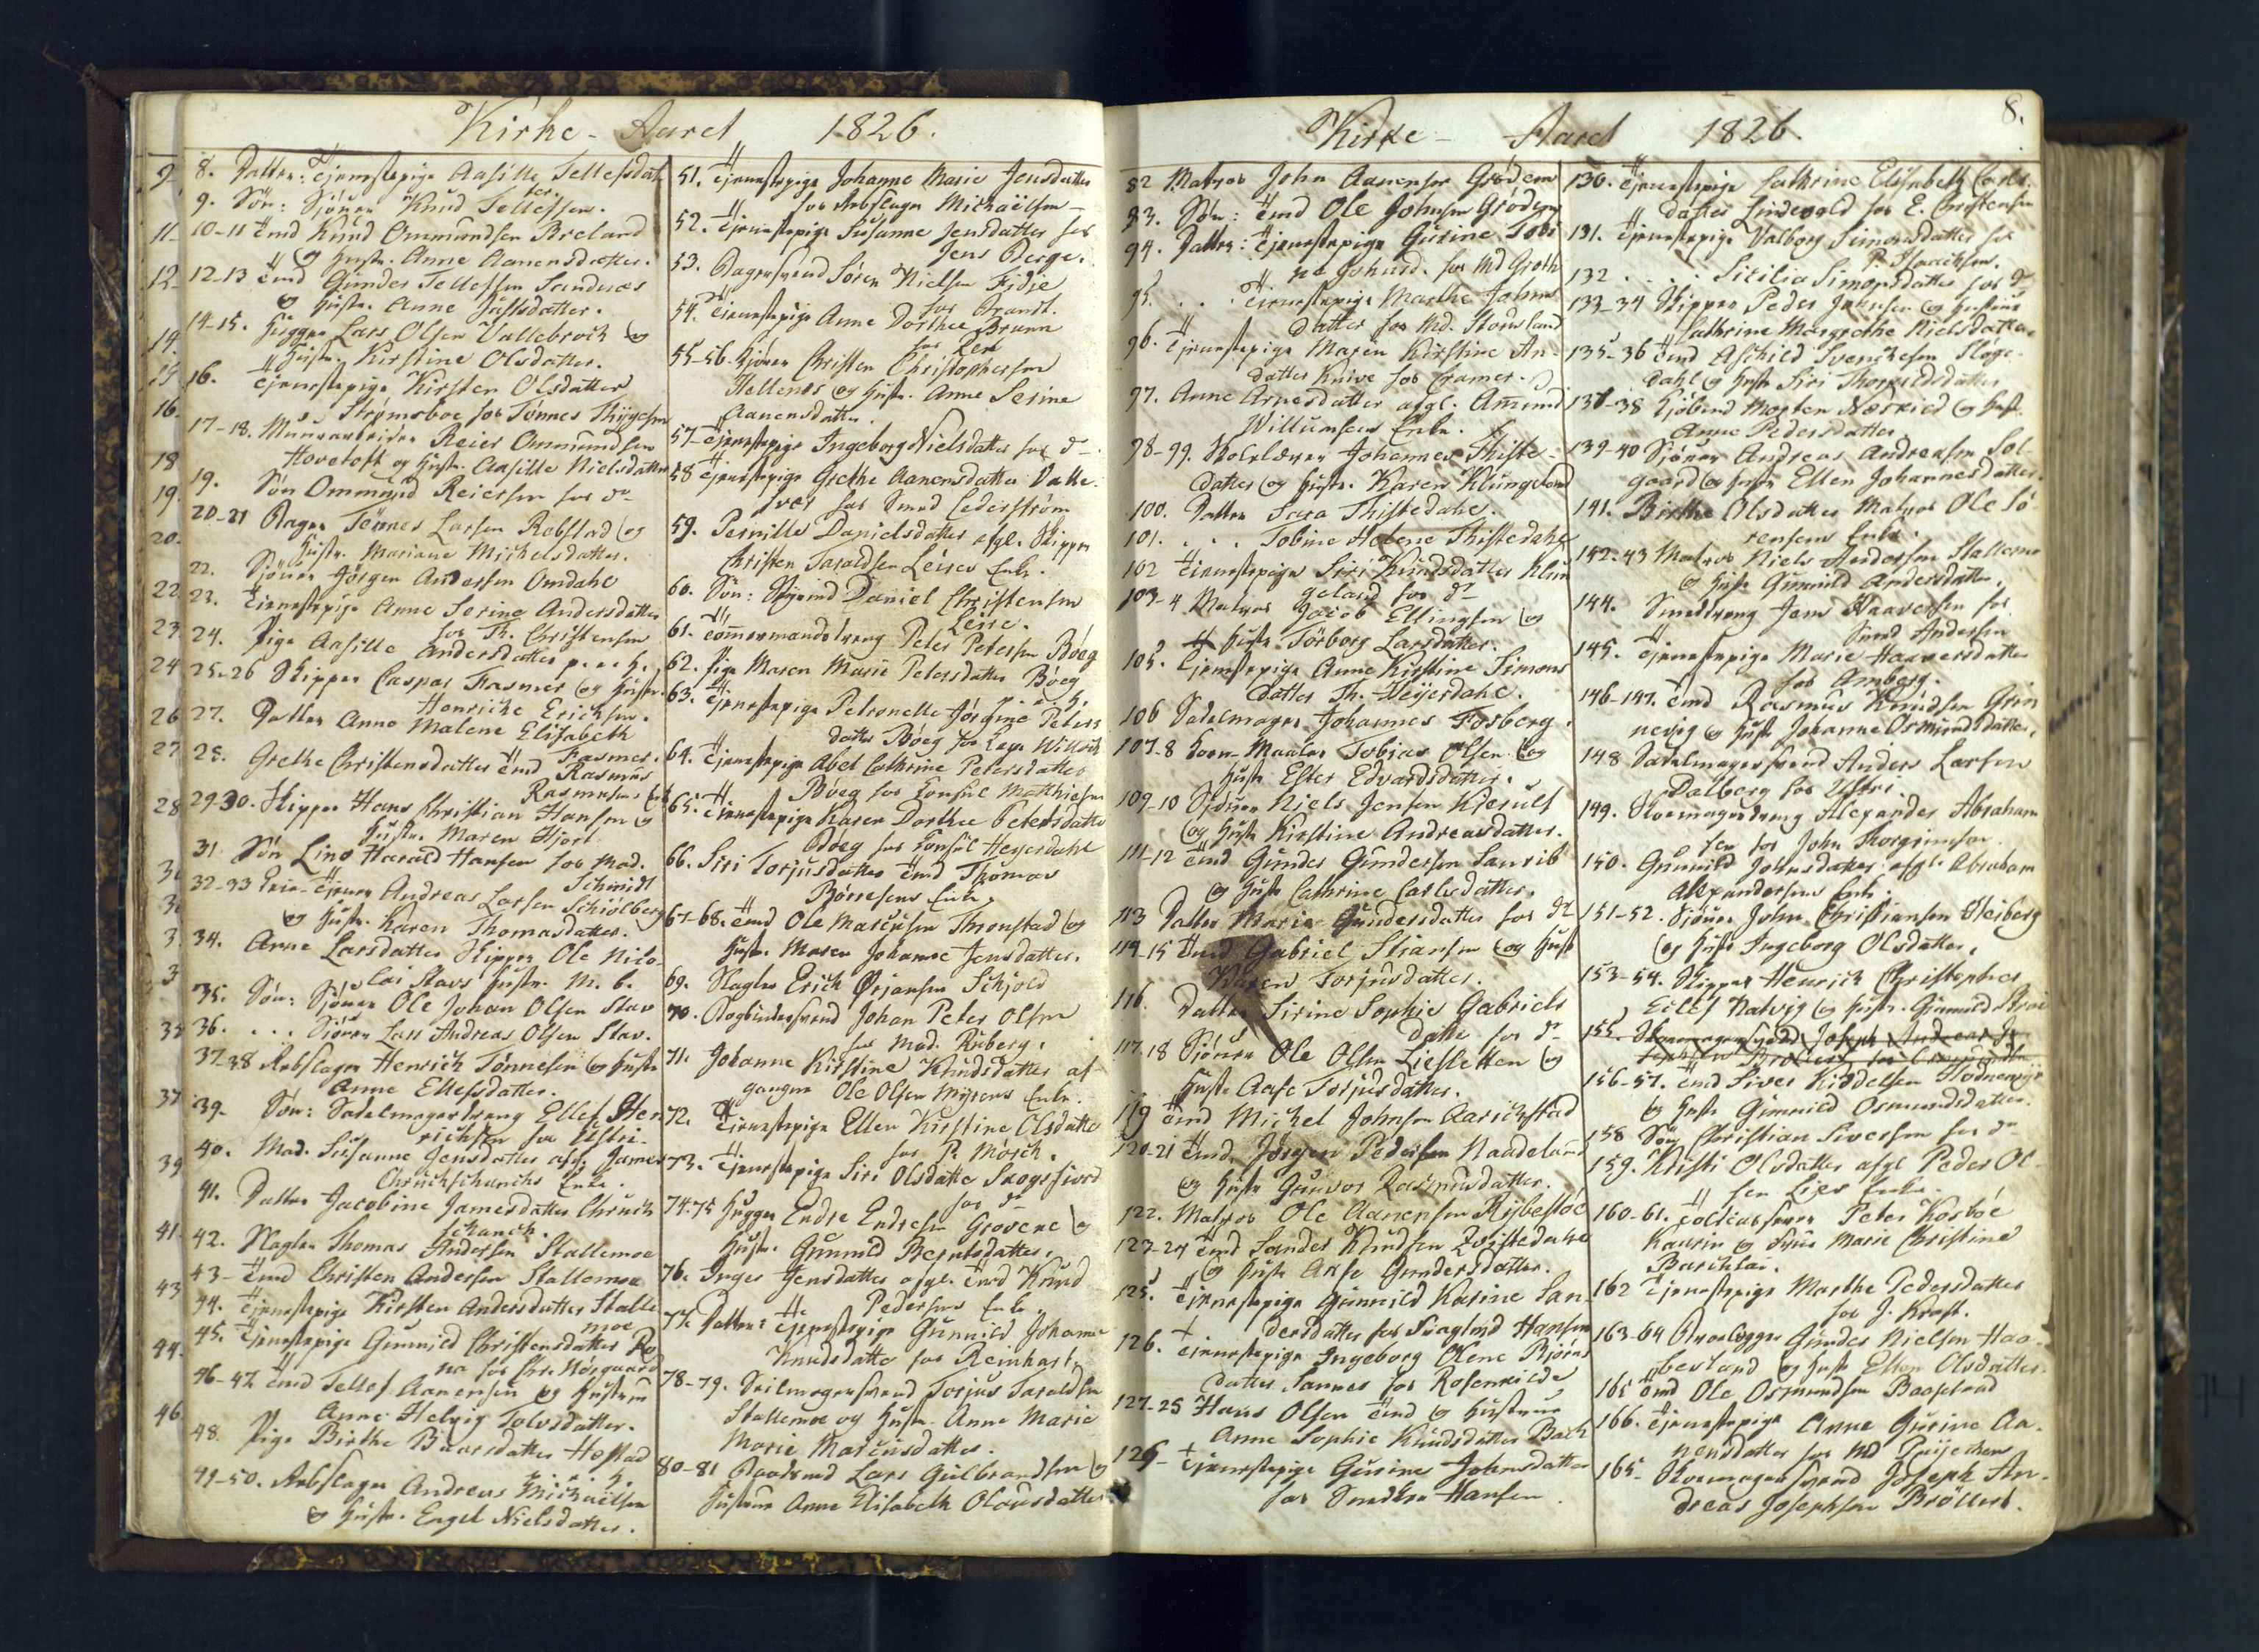 Kirke - Aaret 1826.
8. Datter: Tjenestepige Aasille Tellefsdat
ter.
9. Søn: Sjømd Knud Tellefsen.
10-11 Tmd Knud Ommundsen Breland
og Hustr. Anne Aanensdatter.
12-13 Tmd Gunder Tellefsen Sandnæs
og Hustr. Anne Justsdatter.
14-15. Hugger Lars Olsen Vallebroch og
Hustr. Kirstine Olsdatter.
16. Tjenestepige Kirsten Olsdatter
Strømsboe for Tønnes Thygesen
17-18. Muurarbeider Reier Ommundsen
Hovetoft og Hustr. Aasille Nielsdatter
19. Søn Ommund Reiersen for do
20-21 Bager Tønnes Larsen Robstad og
Hustr. Mariane Michelsdatter.
22. Jörgen Andersen Omdahl
23. Tienestepige Anne Serine Andersdatter
for Th. Christensen
24. Pige Aasille Andersdatter p. e. h.
25-26 Skipper Caspar Fasmer og Hustr.
Henriche Erichsen.
27. Datter Anne Malene Elisabeth
Fasmer.
28. Grethe Christensdatter Tmd Rasmus
Rasmusens
29-30. Skipper Hans Christian Hansen og
Hustr. Maren Hjort
31 Søn Lino Harald Hansen for Mad.
Schmidt
32-33 Andreas Larsen Schiølberg
og Hustr. Karen Thomasdatter.
34. Anne Larsdatter Skipper Ole Nico-
lai Stavs Hustr. M. b.
35. Søn: Ole Johan Olsen Stav
36. . . . Lars Andreas Olsen Stav.
37-38 Rebslager Henrich Tønnesen og Hustr
Anne Ellefsdatter.
39. Søn: Sadelmagerdreng Ellef Hen
richsen for Ustri.
40. Mad. Susanne Jensdatter afg. James
Chruickschancks Enke.
41. Datter Jacobine Jamesdatter Chruick
schanck.
42. Slagter Thomas Andersen Stallemoe
43- Tmd Christen Andersen Stallemoe
44. Tjenestepige Kirsten Andersdatter Stalle
moe
45. Tjenestepige Gunnild Christensdatter Ro
na for Chr. Nørgaard
46-47 Tmd Tellef Aanensen og Hustrue
Anne Helvig Tolvsdatter.
48. Pige Birthe Baarsdatter Hostad
e. h.
49-50. Rebslager Andreas Michaëlsen
og Hustr. Engel Nielsdatter.
51. Tjenestepige Johanne Marie Jensdatter
for Rebslager Michaëlsen
52. Tjenestepige Susanne Jensdatter for
Jens Berge.
53. Bagersvend Søren Nielsen Fidje
for Brandt.
54. Tienestepige Anne Dorthee Brunn
for
55-56. Christen Christophersen
Hellenes og Hustr. Anne Serine
Aanensdatter.
57- Tjenestepige Ingeborg Nielsdatter for do
58 Tjenestepige Grethe Aanensdatter Valle
for Smed Cederstrøm
59. Pernille Danielsdatter afgl. Skipper
Christen Taraldsen Leires Enke.
60. Søn: Daniel Christensen
Leire.
61. Tømmermandsdreng Peter Petersen Bøeg
62. Pige Maren Marie Petersdatter Bøeg
p. e. h.
63. Tjenestepige Petronelle Jørgine Peters
datter Bøeg for Willoch
64. Tjenestepige Abel Cathrine Petersdatter
Bøeg for Consul Matthiesen
65. Tienestepige Karen Dorthee Petersdatter
Bøeg for Consul Heyerdahl
66. Siri Torjusdatter Tmd Thomas
Børresens Enke
67-68. Tmd Ole Marcusen Thronstad og
Hustr. Maren Johanne Jensdatter.
69. Slagter Erich Ørjansen Schjold
70. Bogbindersvend Johan Peter Olsen
for Mad. Ruberg.
71. Johanne Kirstine Knudsdatter af-
gangne Ole Olsen Myrens Enke.
72. Tienestepige Ellen Kirstine Olsdatter
for P. Mørch.
73. Tjenestepige Siri Olsdatter Skogsfiord
for do
74-75 Hugger Endre Endresen Grovene og
Hustr. Gunnild Berntsdatter.
76. Inger Jensdatter afgl. Tmd Knud
Pedersens Enke.
77. Datter: Tjenestepige Gunnild Johanne
Knudsdatter for Reinhart.
78-79. Seilmagersvend Torjus Taraldsen
Stallemoe og Hustr. Anne Marie
Marie Marcusdatter.
80-81 Lars Gulbrandsen og
Hustrue Anne Elisabeth Olausdatter
8.
Kirke - Aaret 1826.
82 Matros John Aanensen Grødem
83. Søn: Tmd Ole Johnsen Grødem
94. Datter: Tjenestepige Gurine Tobi
na Johnsd. for Md Groth
95. . . Tienestepige Marthe Johns
datter for Md. Stousland
96. Tjenestepige Maren Kirstine An-
datter Knive for Cramer.
97. Anne Arnesdatter afgl. Amund
Willumsens Enke.
98-99. Skolelærer Johannes Thiste-
dahl og Hustr. Karen Klungeland
100. Datter Sara Thistedahl.
101. . . . Tobine Helene Thistedahl
102 Tienestepige Siri Knudsdatter Klun
geland for do
103-4 Matros Jacob Ellingsen og
Hustr. Torborg Larsdatter.
105. Tjenestepige Anne Kirstine Simons
datter Th. Heyerdahl.
106 Sadelmager Johannes Fosberg.
107-8 Korn-Maaler Tobias Olsen og
Hustr Ester Edvardsdatter.
109-10 Niels Jensen Kierulf
og Hustr Kirstine Andreasdatter.
111-12 Tmd Gunder Gundersen Saurib
og Hustr Cathrine Carlsdatter.
113 Datter Marie Gundersdatter for do
114-15 Tmd Gabriel Stiansen og Hustr
Karen Torjusdatter.
116. Datter Sirine Sophie Gabriels
datter for do
117-18 Ole Olsen Liesletten og
Hustr Aase Torjusdatter.
119 Tmd Michel Johnsen Aarichstad
120-21 Tmd. Jørgen Pedersen Haadeland
og Hustr Gunvor Rasmusdatter.
122. Matros Ole Aanensen Rysbestøe
123-24 Tmd Sander Knudsen Qvistedahl
og Hustr Aase Gundersdatter.
125. Tjenestepige Gunnild Karine San-
dersdatter for Hansen
126. Tienestepige Ingeborg Olene Bjørns
datter Sannes for Rosenkilde
127-28 Hans Olsen Tmd og Hustrue
Anne Sophie Knudsdatter Bach
129- Tjenestepige Gurine Johnsdatter
for Hansen.
130. Tjenestepige Cathrine Elisabeth Carls-
datter Lindevold for E. Christensen
131. Tjenestepige Valborg Simonsdatter for
P. Isaachsen.
132 . . . . Sicilia Simonsdatter for do
133-34 Skipper Peder Johnsen og Hustrue
Cathrine Margrethe Nielsdatter
135-36 Tmd Aschild Svenchesen Høge-
dahl og Hustr Siri Thorgildsdatter
137-38 Kjøbmd Morten Nærvied og Hustr
Anne Pedersdatter
139-40 Andreas Andreasen Sol-
gaard og Hustr Ellen Johannesdatter.
141. Birthe Olsdatter Matros Ole Sø-
rensens Enke.
142-43 Matros Niels Andersen Stallemoe
og Hustr Gunnild Andersdatter.
144. Smeddreng Jens Haaversen for
Smed Andersen
145. Tjenestepige Marie Haaversdatter
for Amberg.
146-147. Tmd Rasmus Knudsen Grøn
nevig og Hustr Johanne Osmundsdatter.
148 Sadelmagersvend Anders Larsen
Dalberg for Ustri.
149. Skomagerdreng Alexander Abraham
sen for John Thorgrimsen.
150. Gunnild Johnsdatter afgl. Abraham
Alexandersens Enke.
151-52. John Christiansen Heiberg
og Hustr Ingeborg Olsdatter.
153-54. Skipper Henrich Christopher
Eilef Natvig og Hustr. Gunnild
155. Skomagersvend Joseph Andreas Jo-
sephsen Brøllert for
156-57. Tmd Siver Kiddelsen
og Hustr Gunnild Osmundsdatter.
158 Søn Christian Siversen for do
159. Kristi Olsdatter afgl Peder Ol-
sen Lies Enke.
160-61. Peter Kosbøe
Kaurin og Frue Marie Christine
Barichlai.
162 Tjenestepige Marthe Pedersdatter
for J. Kraft.
163-64 Gunder Nielsen Haa-
besland og Hustr Ellen Olsdatter.
165 Tmd Ole Osmundsen Baaseland
166. Tjenestepige Anne Gurine Aa-
nensdatter for Md
165- Skomagersvend Joseph An-
dreas Josephsen Brøllert.